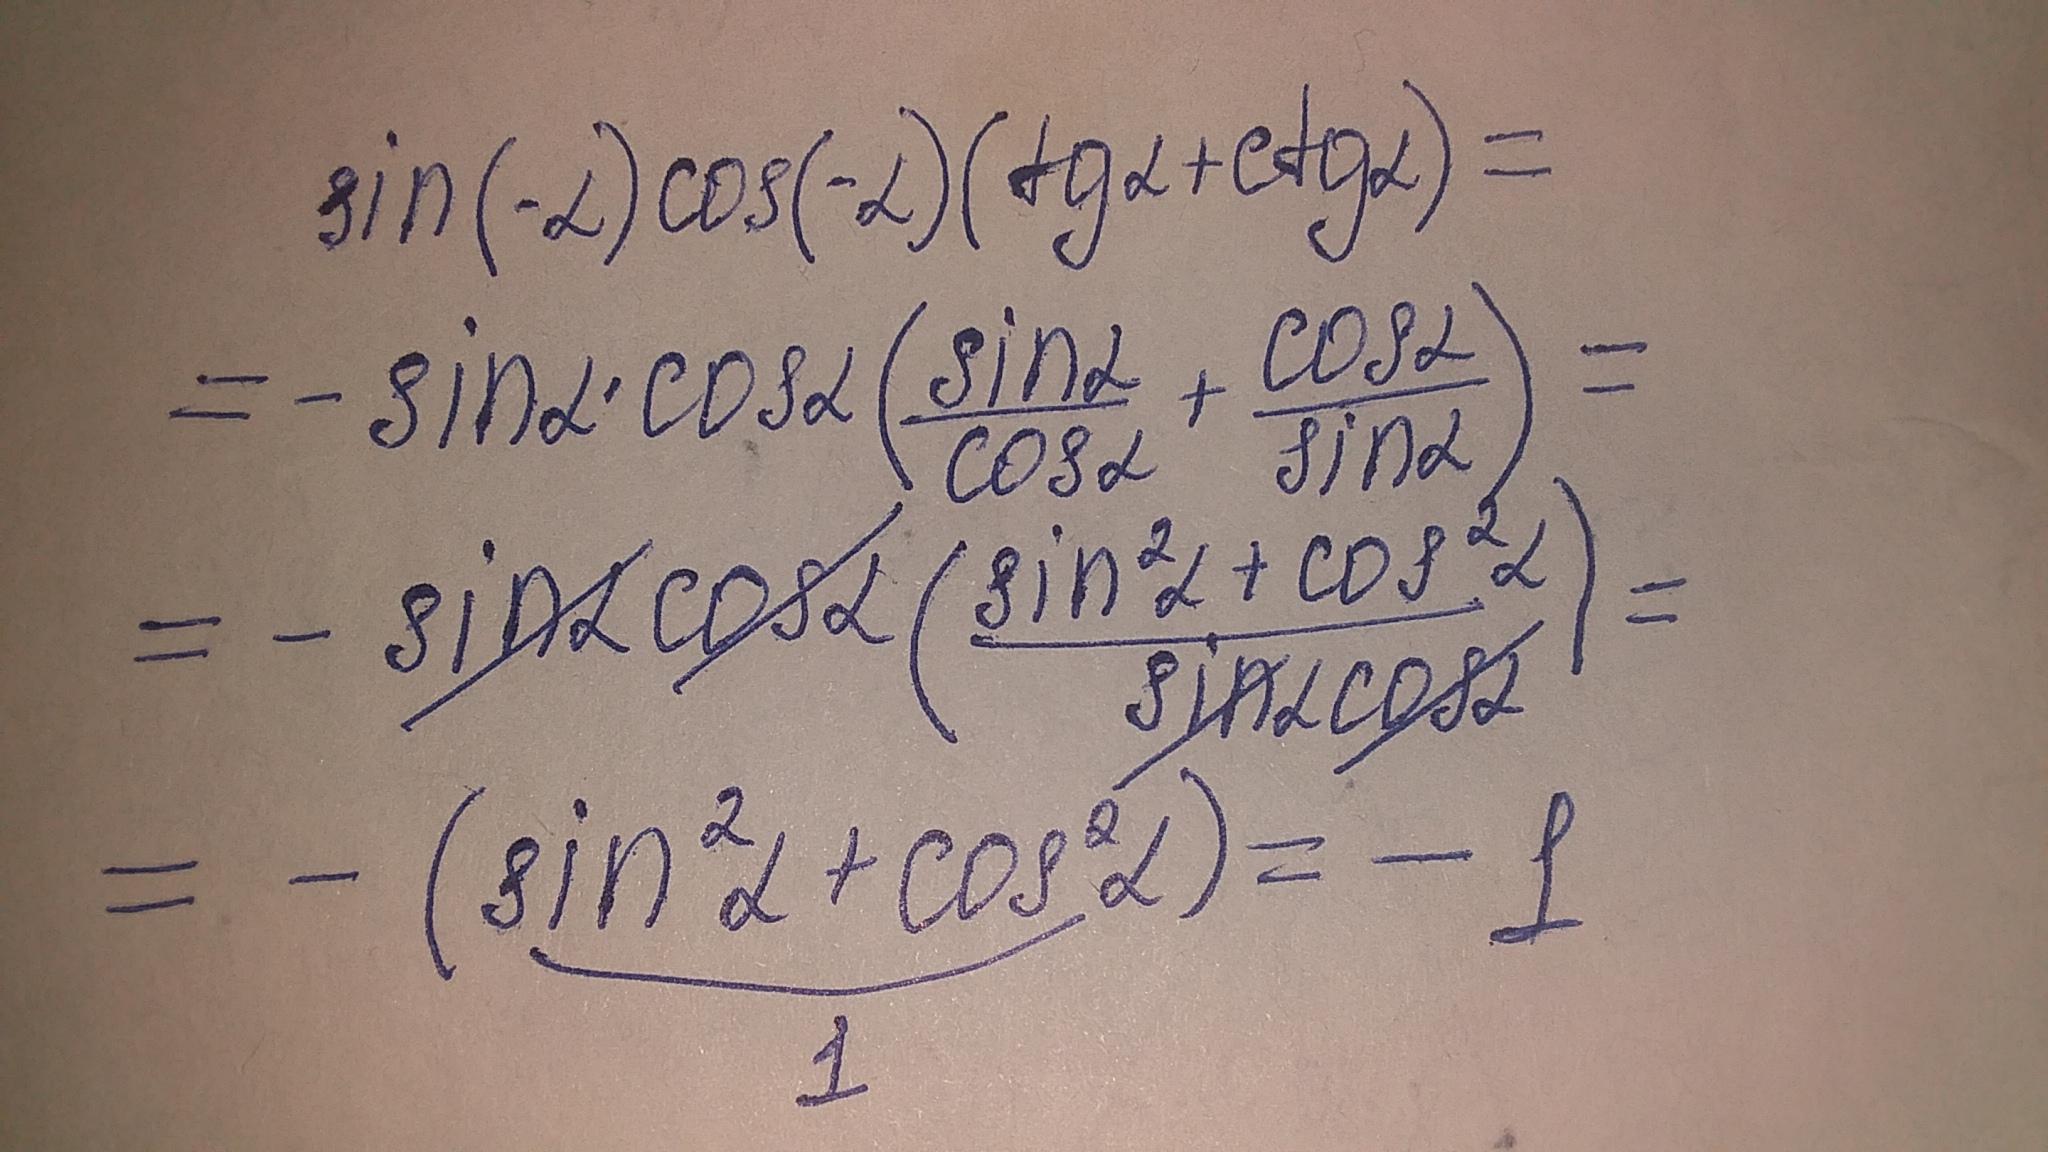 sin(-α)cos(-α)(tgα+ctgα)=
=-sinα·cosα(sinα/cosα+cosα/sinα)=
=-sinαcosα(sin²α+cos²α/sinαcosα)=
=-(sin²α+cos²α)=-1
1